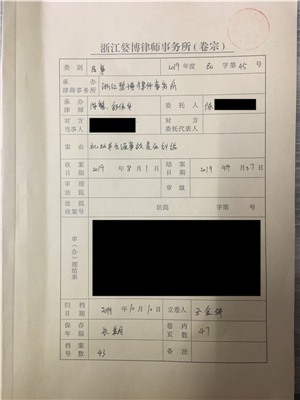 浙江婺博律师事务所(卷宗)
类别 民事 2019年度 民 字第45号
承办律师事务所 浙江婺博律师事务所
承办律师 委托人 陈
对方当事人 对方委托代表人
案由 机动车交通事故责任纠纷
收案日期 2019年8月1日 结案日期 2019年9月27日
审理法院 审级
法院收案号 法院 字第 号
审(办)理结果
归档日期 2019年10月10日 立卷人
保存年限 长期 卷内页数 47
档案号数 43 备注